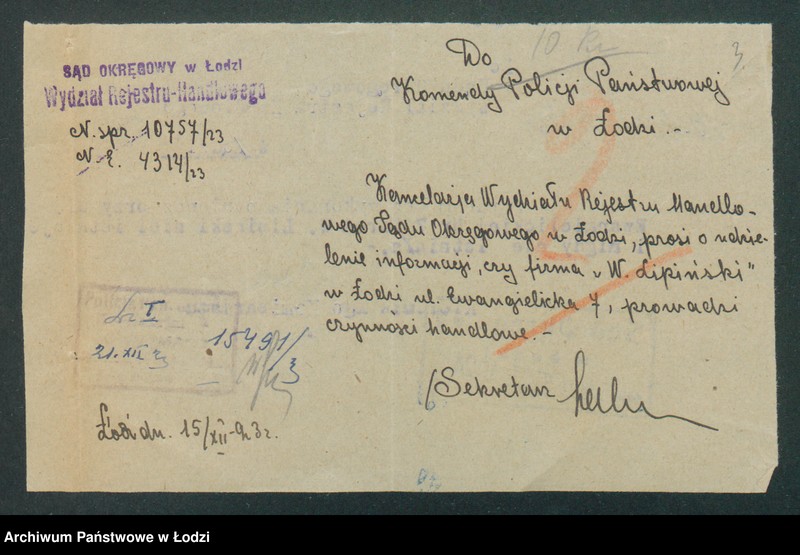 SĄD OKRĘGOWY w Łodzi
Wydział Rejestru-Handlowego
N. spr. 10757/23
N. E. 4314/23
10 Kr
3.
Do
Komendy Policji Państwowej
w Łodzi.-
2
Kancelarja Wydziału Rejestru Handlo-
wego Sądu Okręgowego w Łodzi, prosi o udzie-
lenie informacji, czy firma „W. Lipiński"
w Łodzi ul. Ewangielicka 7, prowadzi
czynności handlowe.-
/Sekretarz
I
21.XII 23
15491/3
Łódź dn. 15/XII-23 r.
Archiwum Państwowe w Łodzi